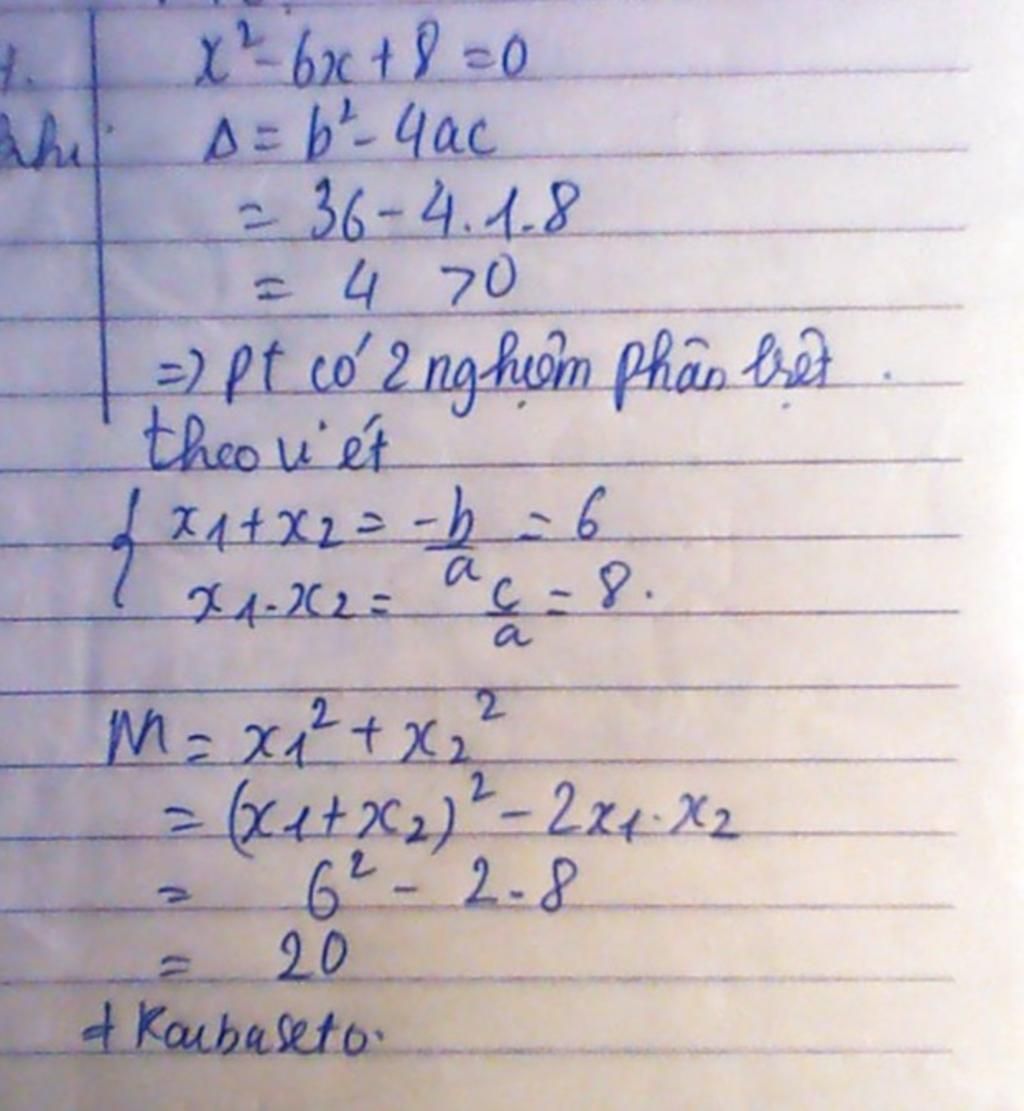 x² - 6x + 8 = 0
Δ = b² - 4ac
= 36 - 4.1.8
= 4 > 0
=> pt có 2 nghiệm phân biệt.
theo vi ét
{ x1 + x2 = -b/a = 6
x1.x2 = c/a = 8.
M = x1² + x2²
= (x1 + x2)² - 2x1.x2
= 6² - 2.8
= 20